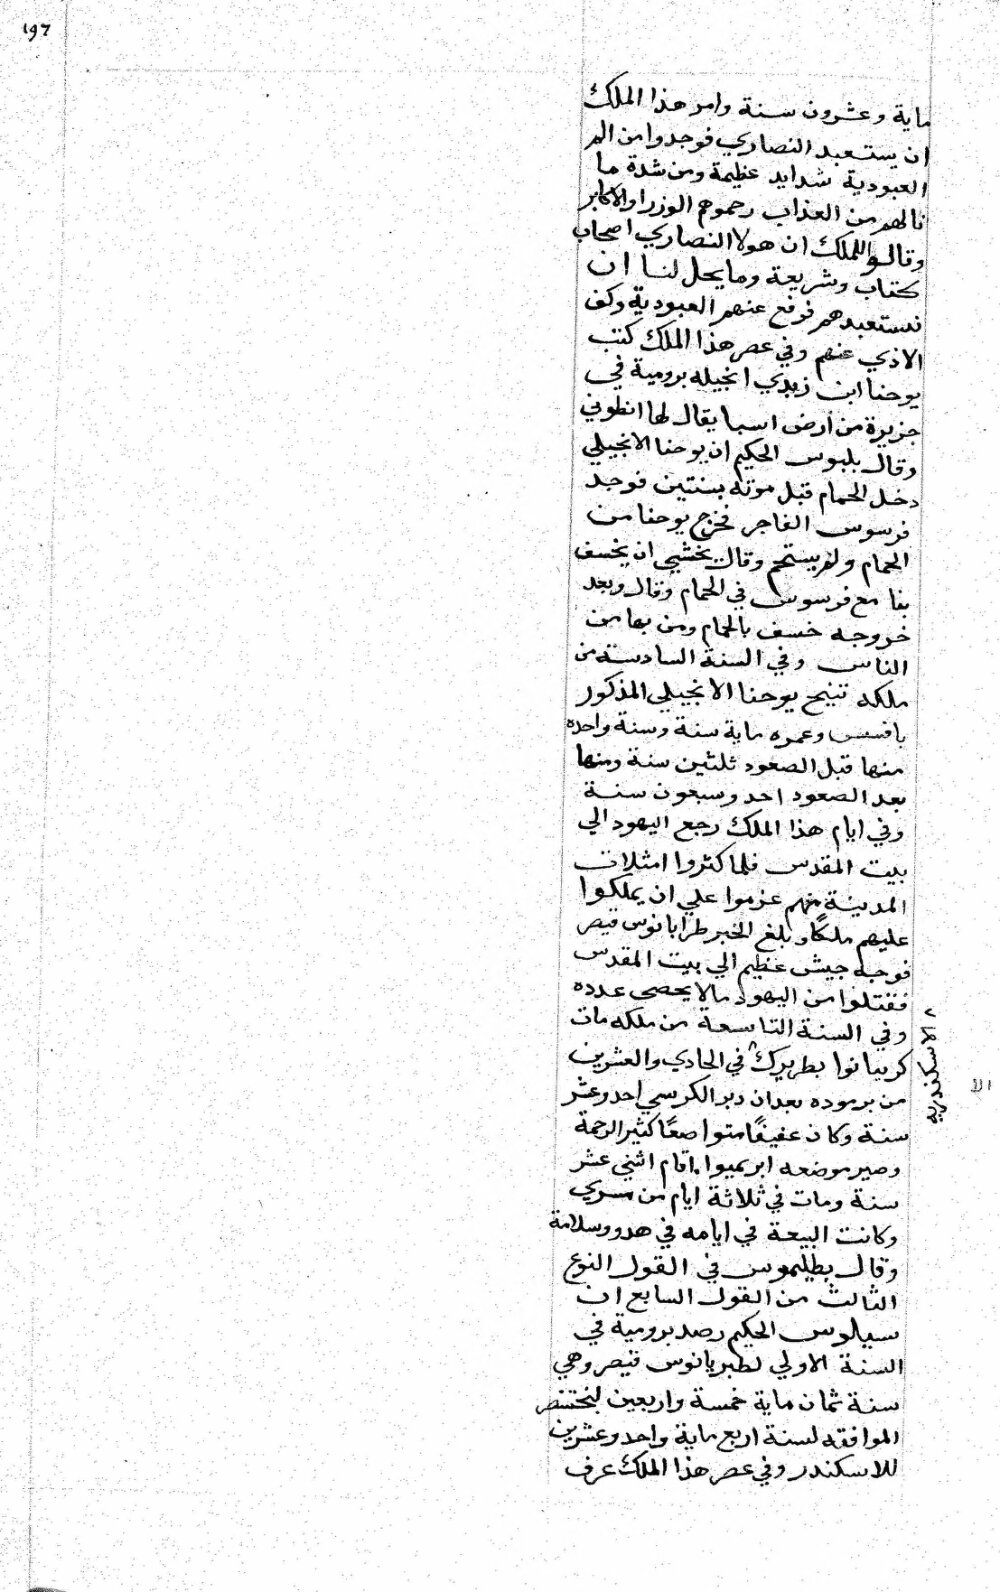 ١٩٦
ماية وعشرون سنة وامر هذا الملك
ان يستعبد النصاري فوجدوا من الم
العبودية شدايد عظيمة ومن شدة ما
نالهم من العذاب رحموهم الوزرا والاكابر
وقالوا للملك ان هولا النصاري اصحاب
كتاب وشريعة وما يحل لنا ان
نستعبدهم فرفع عنهم العبودية وكف
الاذي عنهم وفي عصر هذا الملك كتب
يوحنا ابن زبدي انجيله برومية في
جزيرة من ارض اسيا يقال لها انطوني
وقال بلبوس الحكيم ان يوحنا الانجيلي
دخل الحمام قبل موته بسنتين فوجد
فرسوس الفاجر فخرج يوحنا من
الحمام ولم يستحم وقال يخشي ان يخسف
بنا مع فرسوس في الحمام وقال وبعد
خروجه خسف بالحمام ومن بها من
الناس وفي السنة السادسة من
ملكه تنيح يوحنا الانجيلي المذكور
بافسس وعمره ماية سنة وسنة واحده
منها قبل الصعود ثلثين سنة ومنها
بعد الصعود احد وسبعون سنة
وفي ايام هذا الملك رجع اليهود الي
بيت المقدس فلما كثروا امتلات
المدينة منهم عزموا علي ان يملكوا
عليهم ملكًا وبلغ الخبر طرايانوس قيصر
فوجه جيش عظيم الي بيت المقدس
فقتلوا من اليهود ما لا يحصي عدده
وفي السنة التاسعة من ملكه مات
كربيانوا بطريرك في الحادي والعشرين
الاسكندريه
من برموده بعد ان دبر الكرسي احد وعشر
سنة وكان عفيفًا متواضعًا كثير الرحمة
وصير موضعه ابريميوا اقام اثني عشر
سنة ومات في ثلاثة ايام من مسري
وكانت البيعة في ايامه في هدو وسلامة
وقال بطليموس في القول النوع
الثالث من القول السابع ان
سيلوس الحكيم رصد برومية في
السنة الاولي لطبريانوس قيصر وهي
سنة ثمان ماية خمسة واربعين لبختنصر
الموافقه لسنة اربع ماية واحد وعشرين
للاسكندر وفي عصر هذا الملك عرف